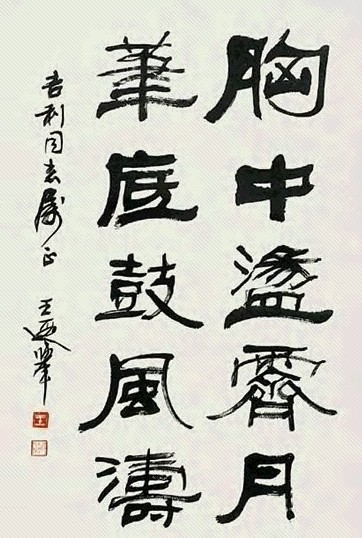 胸中盪霽月
筆底鼓風濤
吉利同志属正 王遐举
王